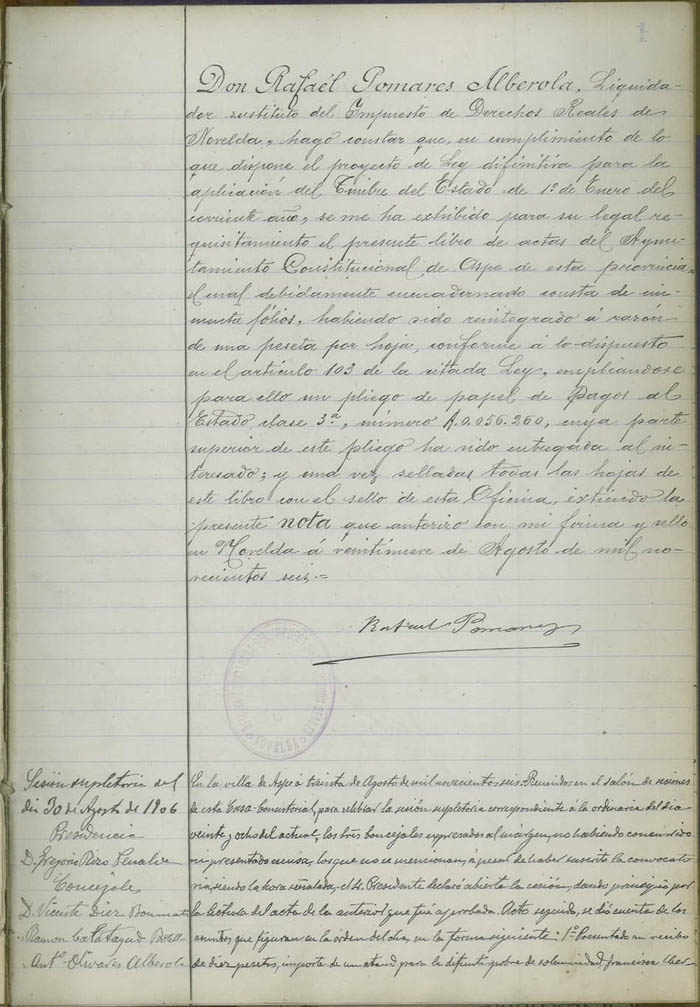 1
Don Rafaél Pomares Alberola, Liquida-
dor sustituto del Impuesto de Derechos Reales de
Novelda, hago constar que, en cumplimiento de lo
que dispone el proyecto de Ley difinitiva para la
aplicación del Timbre del Estado de 1º de Enero del
corriente año, se me ha exhibido para su legal re-
quisitamiento el presente libro de actas del Ayun-
tamiento Constitucional de Aspe de esta provincia,
el cual debidamente encuadernado consta de cin-
cuenta fólios, habiendo sido reintegrado á razón
de una peseta por hoja, conforme á lo dispuesto
en el artículo 103 de la citada Ley, empleandose
para ello un pliego de papel de Pagos al
Estado clase 3ª, número A.0.056.260, cuya parte
superior de este pliego ha sido entregada al in-
teresado; y una vez selladas todas las hojas de
este libro con el sello de esta Oficina, extiendo la
presente nota que autorizo con mi firma y sello
en Novelda á veintinueve de Agosto de mil no-
vecientos seis.=
Rafael Pomares
NOVELDA
Sesión supletoria del
dia 30 de Agosto de 1906
Presidencia
D. Gregorio Rizo Penalva
Concejales
D. Vicente Diez
Ramon Calatayud
Antº Olivares Alberola
En la villa de Aspe á treinta de Agosto de mil novecientos seis. Reunidos en el salón de sesiones
de esta Casa Consistorial, para celebrar la sesión supletoria correspondiente á la ordinaria del dia
veinte y ocho del actual, los tres Concejales expresados al márgen, no habiendo concurrido
ni presentado escusa, los que no se mencionan, á pesar de haber suscrito la convocato
ria, siendo la hora señalada, el Sr. Presidente declaró abierta la sesión, dando principio por
la lectura del acta de la anterior que fué aprobada. Acto seguido, se dió cuenta de los
asuntos que figuran en la orden del dia, en la forma siguiente: 1º Presentado un recibo
de diez pesetas, importe de un ataud para la difunta pobre de solemnidad, Francisca